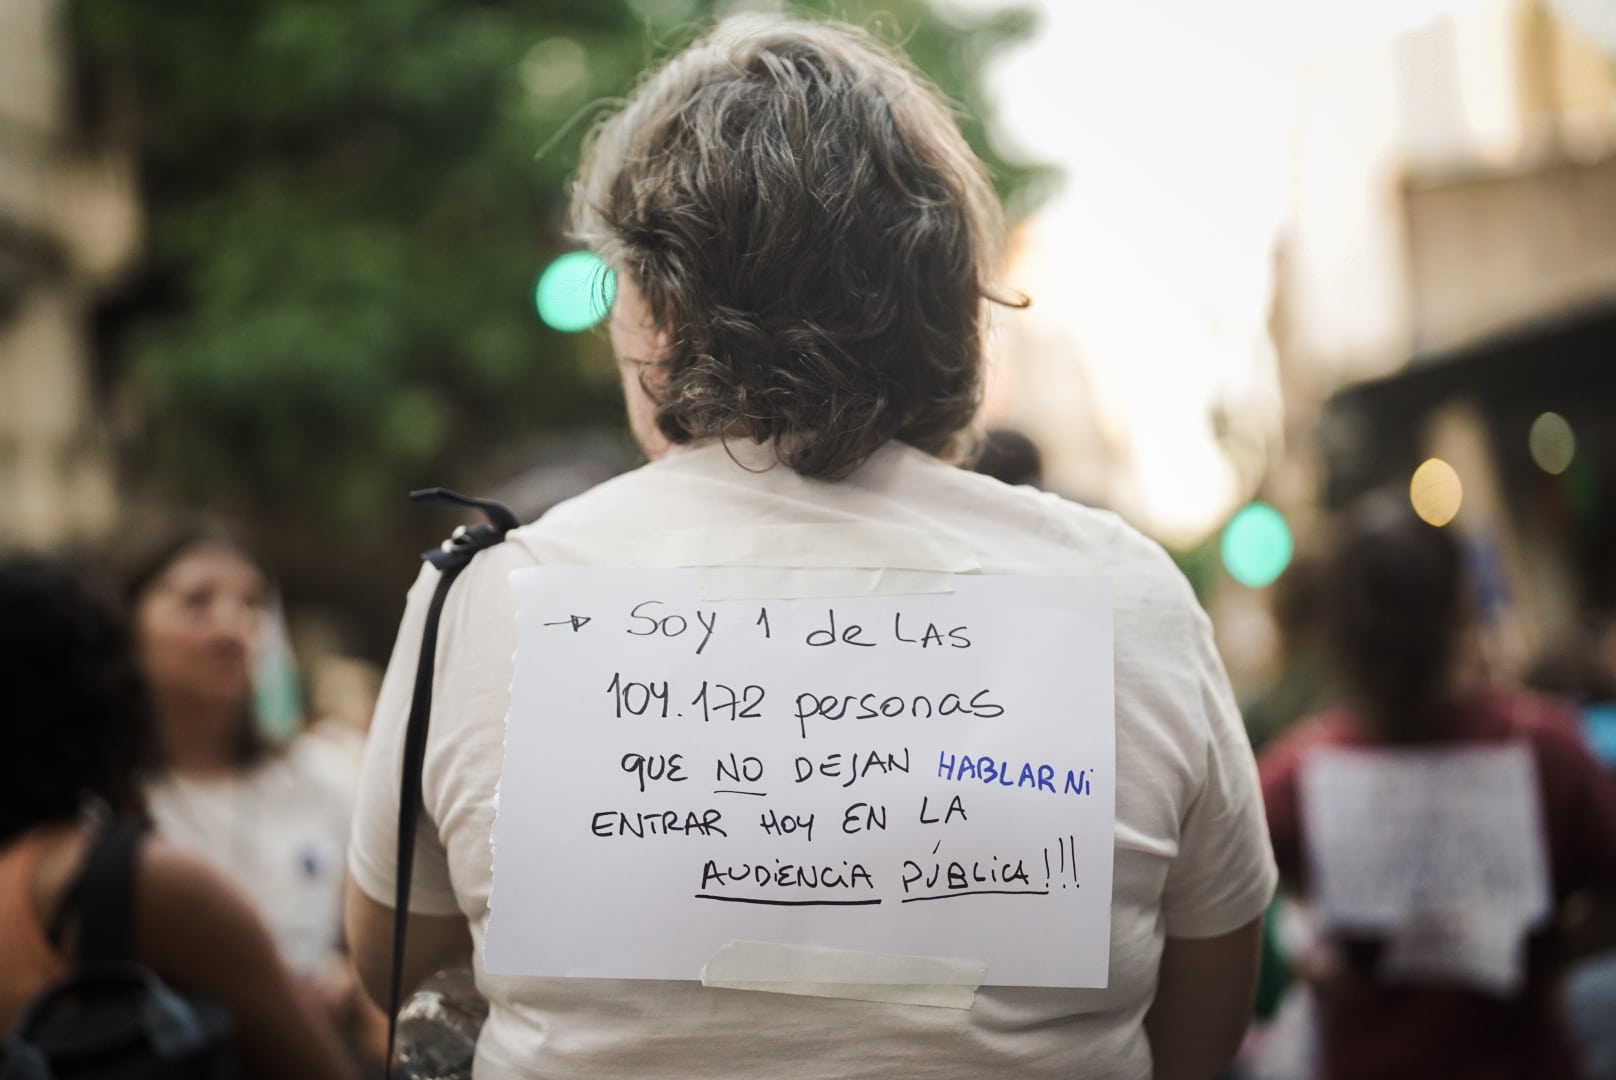 → Soy 1 de LAS
104.172 personas
QUE NO DEJAN HABLAR Ni
ENTRAR HOY EN LA
AUDiENCiA PÚBLiCA!!!